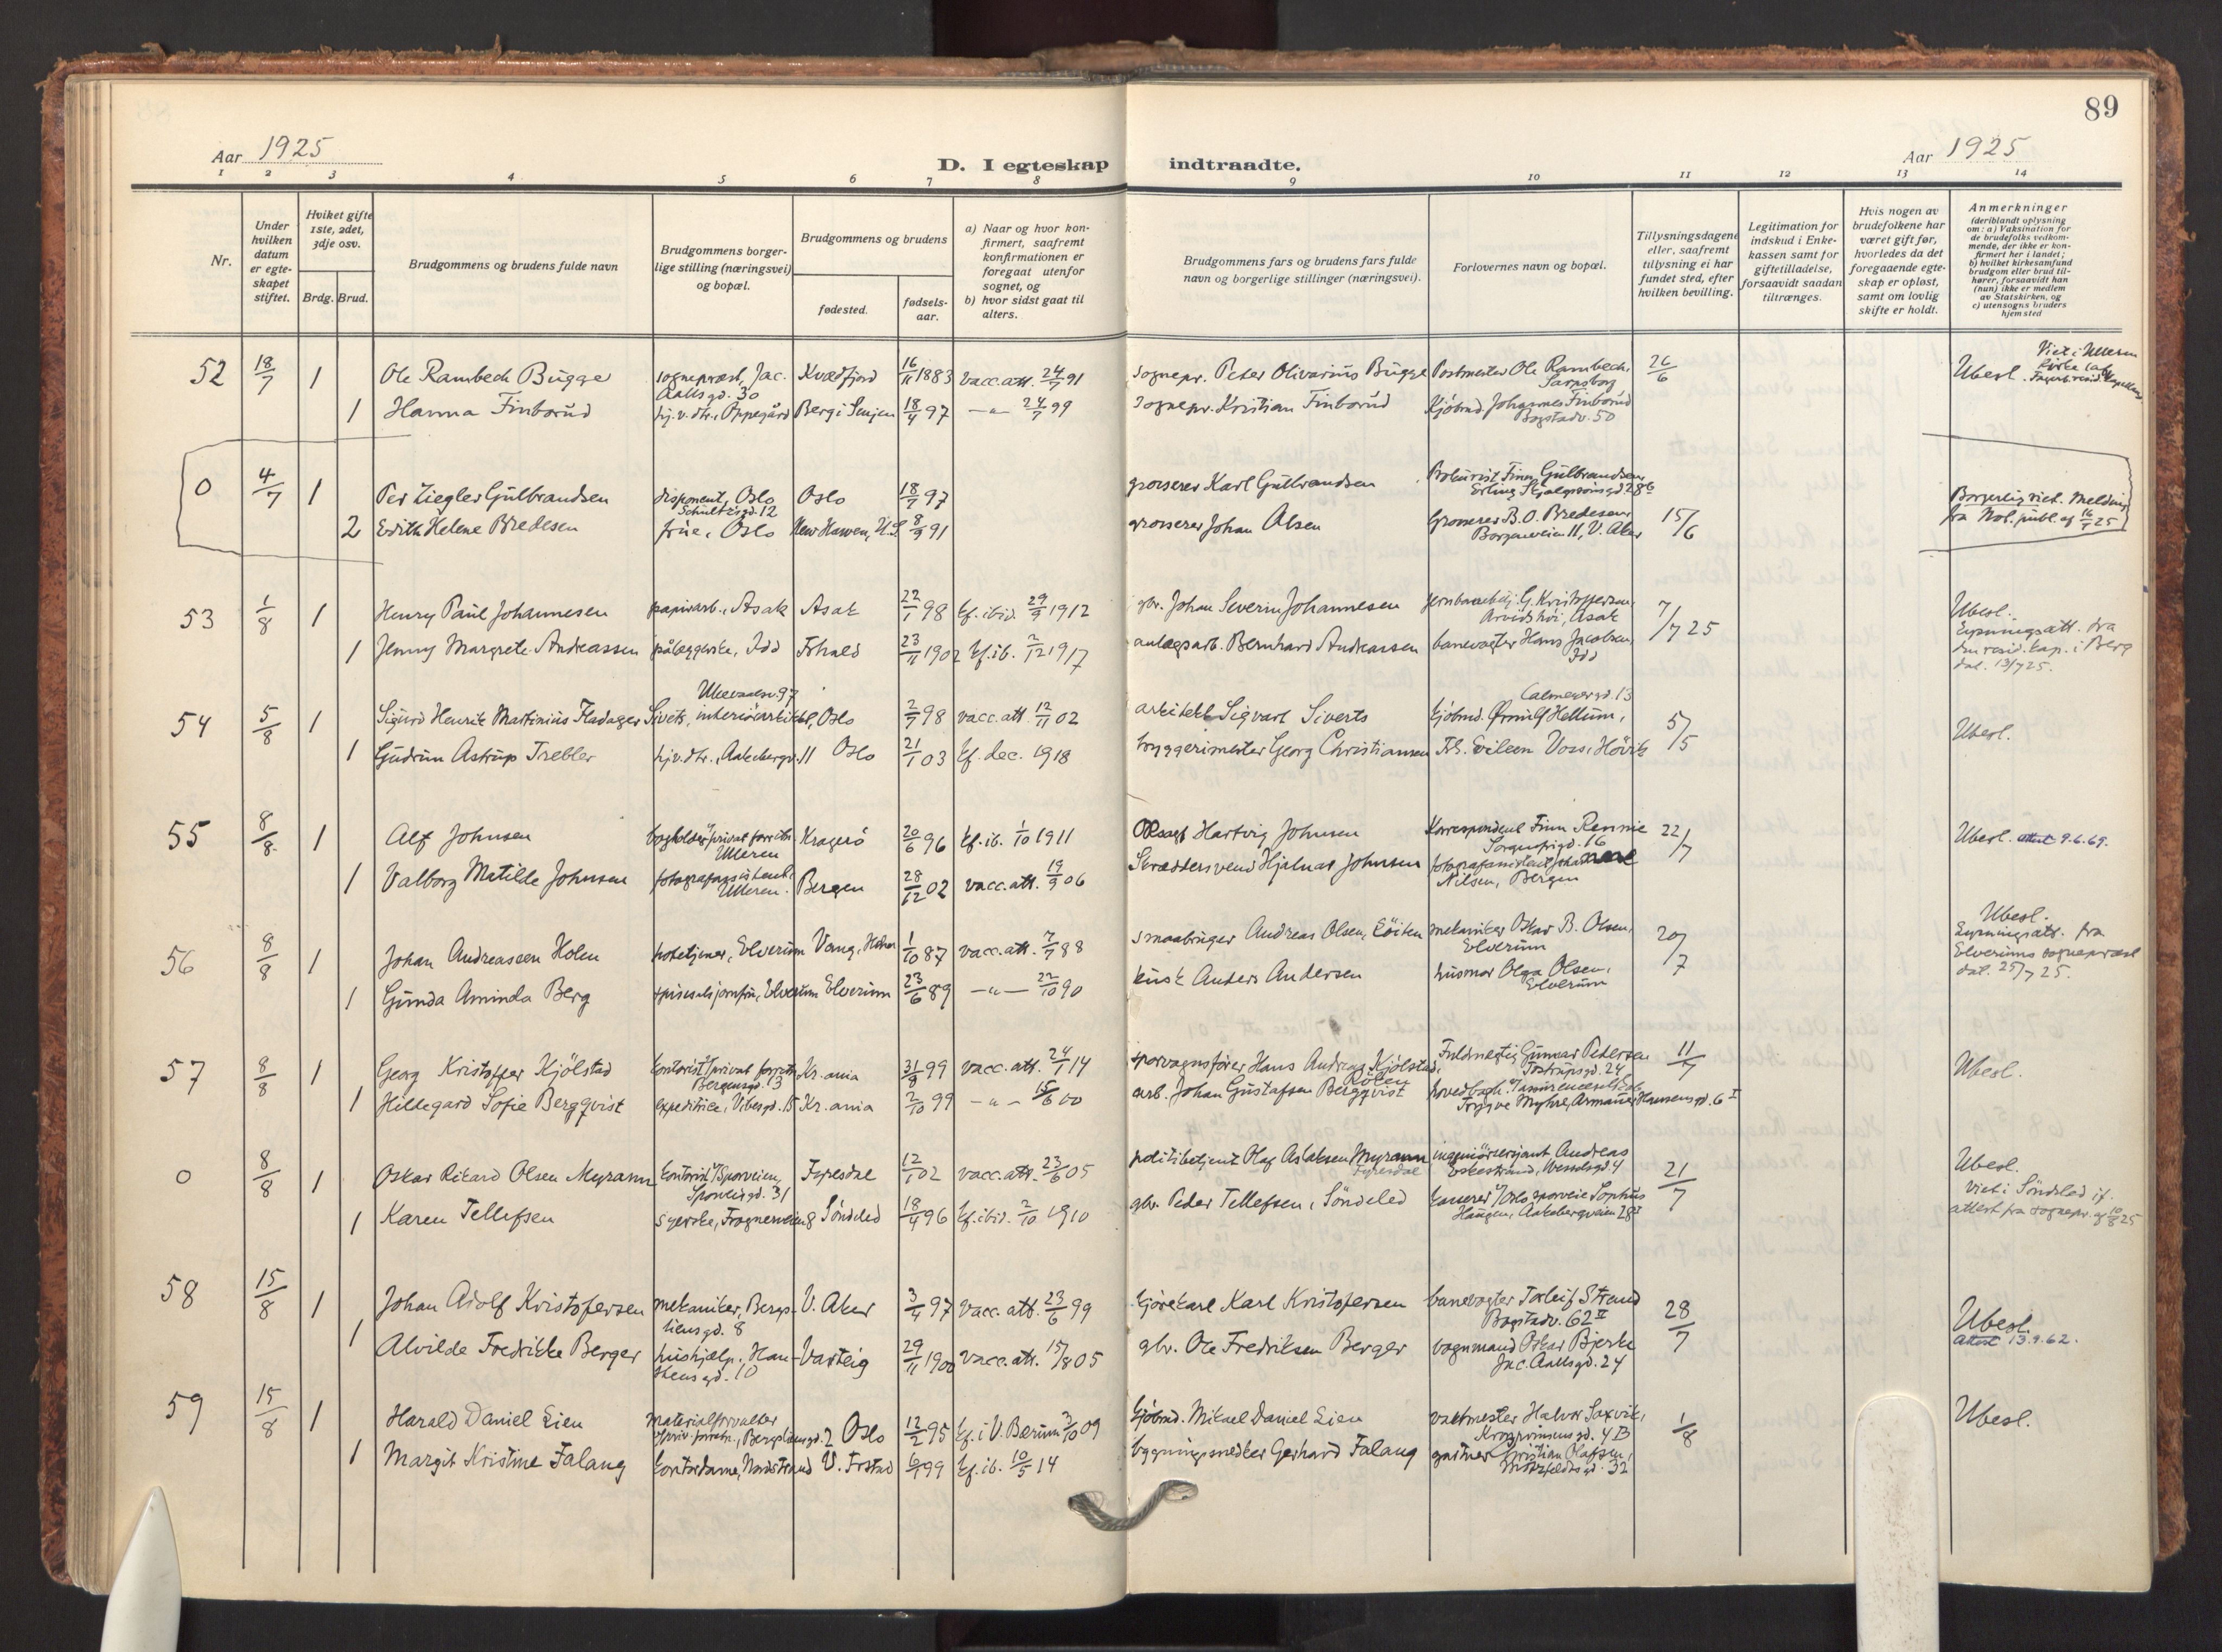 89
Aar 1925
D. I egteskap indtraadte.
Aar 1925
1 2 3 4 5 6 7 8 9 10 11 12 13 14
Nr.
Under hvilken datum er egteskapet stiftet.
Hviket gifte 1ste, 2det, 3dje osv.
Brdg. Brud.
Brudgommens og brudens fulde navn
Brudgommens borgerlige stilling (næringsvei) og bopæl.
Brudgommens og brudens
fødested.
fødselsaar.
a) Naar og hvor konfirmert, saafremt konfirmationen er foregaat utenfor sognet, og
b) hvor sidst gaat til alters.
Brudgommens fars og brudens fars fulde navn og borgerlige stillinger (næringsvei).
Forlovernes navn og bopæl.
Tillysningsdagene eller, saafremt tillysning ei har fundet sted, efter hvilken bevilling.
Legitimation for indskud i Enkekassen samt for giftetilladelse, forsaavidt saadan tiltrænges.
Hvis nogen av brudefolkene har været gift før, hvorledes da det foregaaende egteskap er opløst, samt om lovlig skifte er holdt.
Anmerkninger
(deriblandt oplysning om: a) Vaksination for de brudefolks vedkommende, der ikke er konfirmert her i landet; b) hvilket kirkesamfund brudgom eller brud tilhører, forsaavidt han (hun) ikke er medlem av Statskirken, og c) utensogns bruders hjemsted
52 18/7 1 Ole Rambech Bugge sogneprest, Jac. Aallsgd. 30 Kvædfjord 16/11 1883 vacc. att. 24/7 91 sognepr. Peter Olivarius Bugge Postmester Ole Rambech, Sarpsborg 26/6 Ubesl. Viet i Ullern kirke
1 Hanna Finborud hj.v. dtr., Oppegård Berg i Senjen 18/4 97 -"- 24/7 99 sognepr. Kristian Finborud Kjöbmd. Johannes Finborud Bogstadv. 50
0 4/7 1 Per Ziegler Gulbrandsen disponent, Oslo Schultzsgd. 12 Oslo 18/7 97 grosserer Karl Gulbrandsen Prokurist Finn Gulbrandsen, Erling Skjalgssonsgd. 28 b
2 Edith Helene Bredesen frue, Oslo New Hawen, U.S. 8/9 91 grosserer Johan Olsen Grosserer B.O. Bredesen, Borgenveien 11, V. Aker 15/6 Borgerlig viet. Melding fra Not. publ. af 16/7 25
53 1/8 1 Henry Paul Johannesen papirarb., Asak Asak 22/1 98 kf. ibid. 29/9 1912 gbr. Johan Severin Johannesen jernbanebetj. G. Kristoffersen, Arvidshöi, Asak 7/7 25 Ubesl. Lysningsatt. fra den resid. kap. i Berg dat. 13/7 25.
1 Jenny Margrete Andreassen pålæggerske, Idd Frhald 23/11 1902 kf. ib. 2/12 1917 anlægsarb. Bernhard Andreassen banevogter Hans Jacobsen, Idd
54 5/8 1 Sigurd Henrik Martinius Fladager Siverts, interiörarkitekt, Oslo Ullevaalsv. 97 2/7 98 vacc. att. 12/11 02 arkitekt Sigvart Siverts kjöbmd. Örnulf Hellum, Calmeyersgd. 13 5/5 Ubesl.
1 Gudrun Astrup Trebler hj.v. dtr., Aakebergv. 11 Oslo 21/1 03 kf. dec. 1918 bryggerimester Georg Christiansen Frk. Eileen Voss, Hövik
55 8/8 1 Alf Johnsen bogholder i privat forretn. Ulleren Kragerö 20/6 96 kf. ib. 1/10 1911 Hartvig Johnsen Korrespondent Finn Rennie Sorgenfrigd. 16 22/7 Ubesl. attest 9.6.69.
1 Valborg Matilde Johnsen fotografassistent, Ulleren. Bergen 28/12 02 vacc. att. 19/9 06 Skræddersvend Hjalmar Johnsen fotografassistent Nilsen, Bergen
56 8/8 1 Johan Andreassen Holen hoteltjener, Elverum Vang, Hdm 1/10 87 vacc. att. 7/7 88 smaabruger Andreas Olsen, Löiten mekaniker Oskar B. Olsen, Elverum 20/7 Ubesl. Lysningsatt. fra Elverums sogneprest dat. 25/7 25.
1 Gunda Aminda Berg spisesalsjomfru, Elverum Elverum 23/6 89 -"- 22/10 90 kusk Anders Andersen husmor Olga Olsen, Elverum
57 8/8 1 Georg Kristoffer Kjölstad kontorist i privat forretn. Bergensgd. 13 Kr.ania 31/8 99 vacc. att. 24/1 14 sporvognsförer Hans Andreas Kjölstad, Fuldmegtig Gunnar Pedersen Tostrupsgd. 24 11/7 Ubesl.
1 Hildegard Sofie Bergqvist expeditrice, Vibesgd. 15 Kr.ania 2/10 99 -"- 15/6 00 arb. Johan Gustafsen Bergqvist Trygve Myhre, Armauer Hansensgd. 6 I
0 8/8 1 Oskar Rikard Olsen Myrann kontorist v/Sporveien, Sporveisgd. 31 Fyresdal 12/1 02 vacc. att. 23/6 05 politibetjent Olaf Aslaksen Myrann Fyresdal ingeniörsersjant Andreas Eskestrand, Wesselsgd 4 21/7 Ubesl. Viet i Söndeled if. attest fra sognepr. af 10/8 25
1 Karen Tellefsen syerske, Frognerveien 8 Söndeled 18/4 96 kf. ibid. 2/10 1910 gbr. Peder Tellefsen, Söndeled kasserer v/Oslo sporveie Sophus Haugen, Aakebergveien 28 I
58 15/8 1 Johan Adolf Kristofersen mekaniker, Bergsliensgd. 8 V. Aker 3/4 97 vacc. att. 23/6 99 kjörekarl Karl Kristofersen banevogter Torleif Strand Bogstadv. 62 II 28/7 Ubesl. attest 13.9.62.
1 Alvilde Fredrikke Berger hushjelp, Hansteensgd. 10 Varteig 29/11 1900 vacc. att. 15/8 05 gbr. Ole Fredriksen Berger vognmand Oskar Bjerke Jac. Aallsgd. 24
59 15/8 1 Harald Daniel Lien materialforvalter v/priv. forretn., Bergsliensgd. 2 Oslo 12/2 95 kf. i V. Bærum 3/10 09 Kjöbmd. Mikael Daniel Lien vaktmester Halvor Saxvik, Krogsvinsgd. 4 B 1/8 Ubesl.
1 Margit Kristine Falang kontordame, Nordstrand V. Frstad 6/1 99 kf. ib. 10/5 14 bygningssnedker Gerhard Falang gartner Kristian Olafsen, Motzfeldtsgd. 32